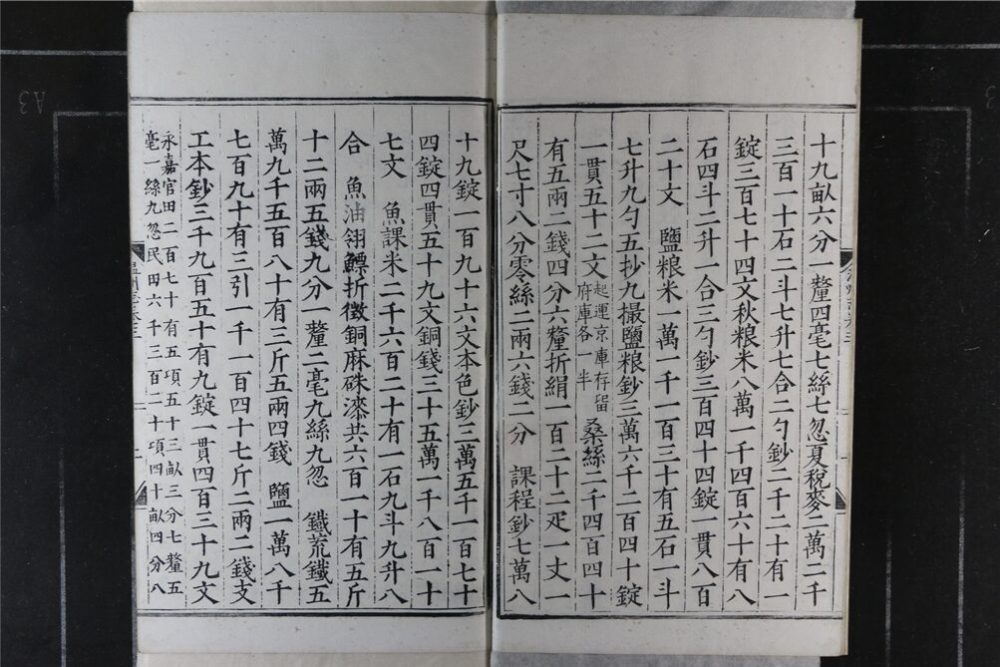 十九畝六分一釐四毫七絲七忽夏稅麥二萬二千
三百一十石二斗七升七合二勺鈔二千二十有一
錠三百七十四文秋粮米八萬一千四百六十有八
石四斗二升一合三勺鈔三百四十四錠一貫八百
二十文　鹽粮米一萬一千一百三十有五石一斗
七升九勺五抄九撮鹽粮鈔三萬六千二百四十錠
一貫五十二文起運京庫存留府庫各一半　桑絲二千四百四十
有五兩二錢四分六釐折絹一百二十二疋一丈一
尺七寸八分零絲二兩六錢二分　課程鈔七萬八
十九錠一百九十六文本色鈔三萬五千一百七十
四錠四貫五十九文銅錢三十五萬一千八百一十
七文　魚課米二千六百二十有一石九斗九升八
合　魚油翎鰾折徵銅麻硃漆共六百一十有五斤
十二兩五錢九分一釐二毫九絲九忽　鐵荒鐵五
萬九千五百八十有三斤五兩四錢　鹽一萬八千
七百九十有三引一千一百四十七斤二兩二錢支
工本鈔三千九百五十有九錠一貫四百三十九文
永嘉官田二百七十有五項五十三畝三分七釐五
毫一絲九忽民田六千三百二十項四十畝四分八